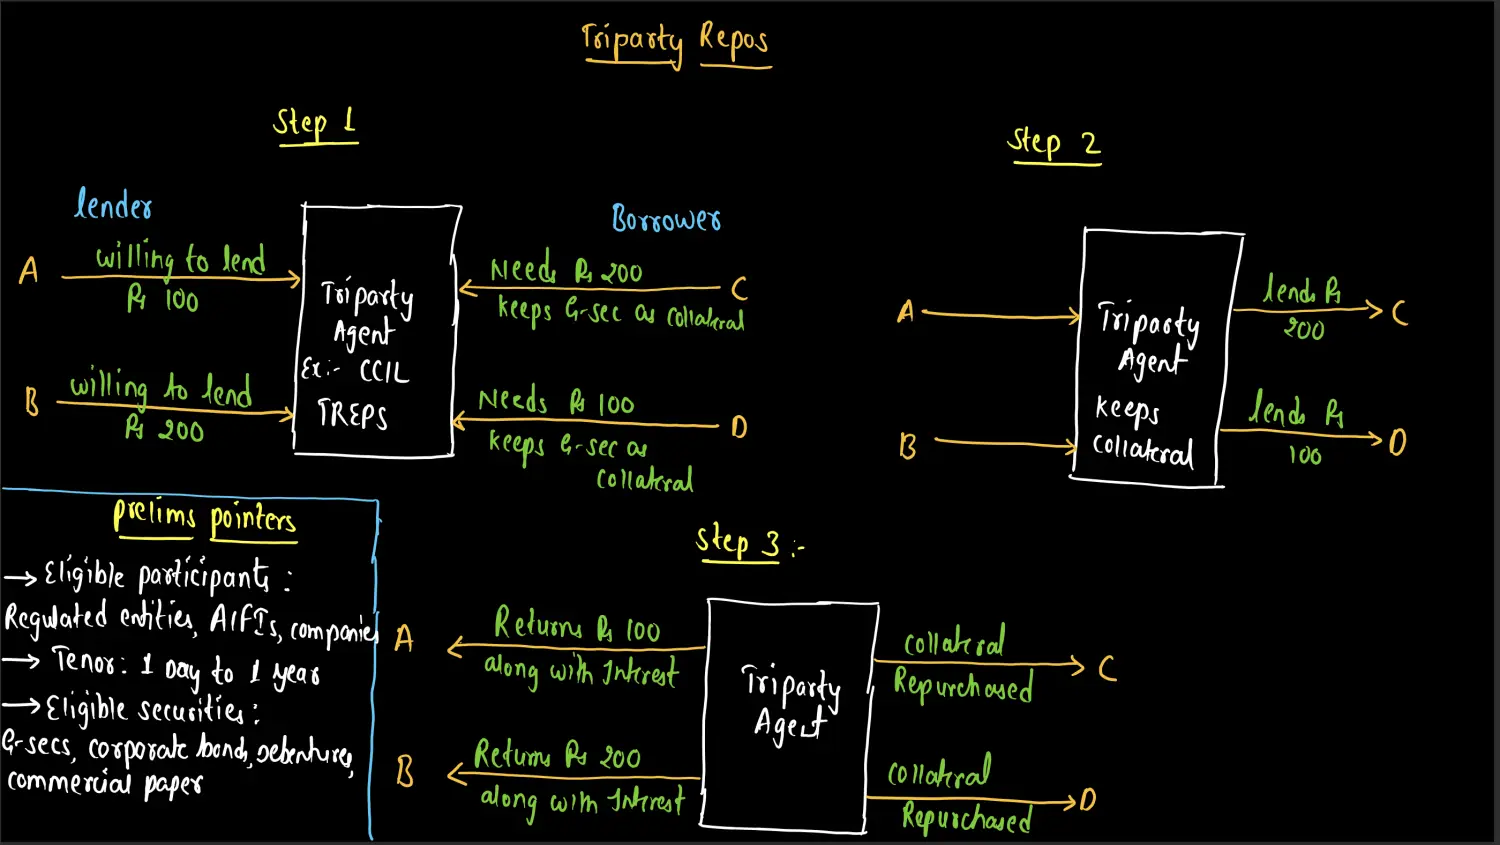 Triparty Repos
Step 1
lender
Borrower
A
willing to lend
Rs 100
B
willing to lend
Rs 200
Triparty
Agent
Ex:- CCIL
TREPS
Needs Rs 200
C
keeps G-sec as collateral
Needs Rs 100
D
keeps G-sec as
collateral
Step 2
A
B
Triparty
Agent
keeps
collateral
lends Rs
200
C
lends Rs
100
D
prelims pointers
→ Eligible participants:
Regulated entities, AIFIs, companies
→ Tenor: 1 Day to 1 year
→ Eligible securities:
G-secs, corporate bonds, debentures,
commercial paper
Step 3:-
A
Returns Rs 100
along with Interest
B
Returns Rs 200
along with Interest
Triparty
Agent
collateral
Repurchased
C
collateral
Repurchased
D